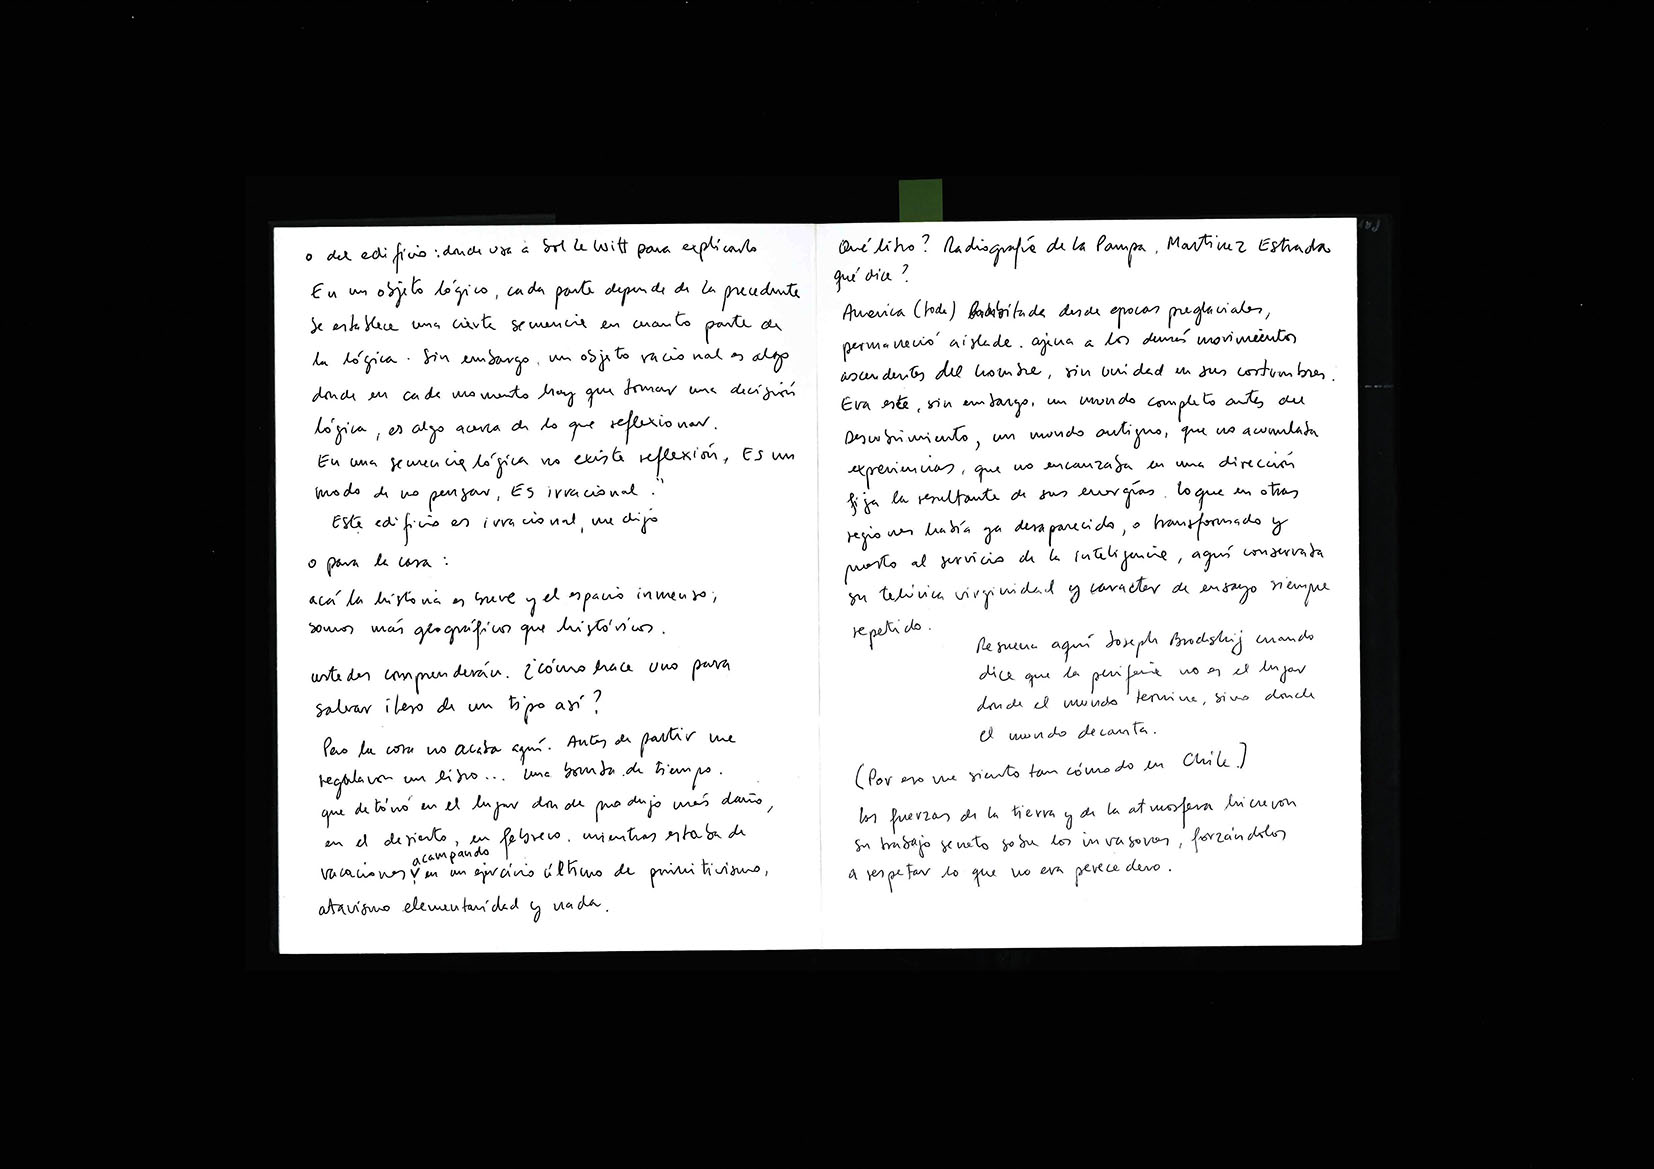 o del edificio: donde usa a Sol le Witt para explicarlo
En un objeto lógico, cada parte depende de la precedente
se establece una cierta secuencia en cuanto parte de
la lógica. Sin embargo, un objeto racional es algo
donde en cada momento hay que tomar una decisión
lógica, es algo acerca de lo que reflexionar.
En una secuencia lógica no existe reflexión, Es un
modo de no pensar, Es irracional."
Este edificio es irracional, me dijo
o para la casa:
acá la historia es breve y el espacio inmenso;
somos más geográficos que históricos.
ustedes comprenderán. ¿cómo hace uno para
salvar ileso de un tipo así?
Pero la cosa no acaba aquí. Antes de partir me
regalaron un libro... una bomba de tiempo.
que detonó en el lugar donde produjo más daño,
en el desierto, en febrero. mientras estaba de
acampando
vacaciones en un ejercicio último de primitivismo,
atavismo elementaridad y nada.
Qué libro? Radiografía de la Pampa, Martinez Estrada
qué dice?
America (toda) habitada desde epocas preglaciales,
permaneció aislada. ajena a los demás movimientos
ascendentes del hombre, sin unidad en sus costumbres.
Era este, sin embargo, un mundo completo antes del
Descubrimiento, un mundo antiguo, que no acumulaba
experiencias, que no encauzaba en una dirección
fija la resultante de sus energías. lo que en otras
regiones había ya desaparecido, o transformado y
puesto al servicio de la inteligencia, aquí conservaba
su telúrica virginidad y caracter de ensayo siempre
repetido.
Resuena aquí Joseph Brodskij cuando
dice que la periferia no es el lugar
donde el mundo termina, sino donde
el mundo decanta.
(Por eso me siento tan cómodo en Chile.)
las fuerzas de la tierra y de la atmosfera hicieron
su trabajo secreto sobre los invasores, forzándolos
a respetar lo que no era perecedero.